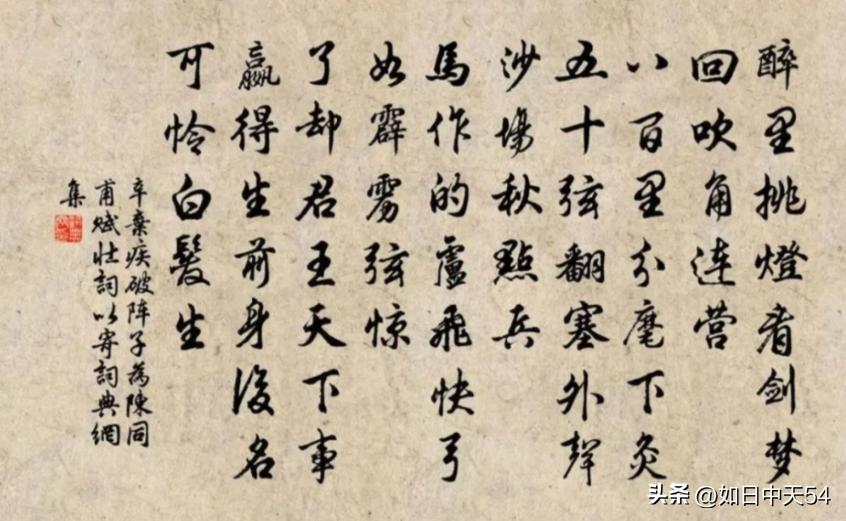 醉里挑燈看剑梦
回吹角连营
八百里分麾下灸
五十弦翻塞外聲
沙場秋點兵
馬作的盧飛快弓
如霹雳弦惊
了却君王天下事
赢得生前身後名
可怜白髮生
辛棄疾破阵子為陳同
甫赋壮詞以寄詞典網
集
头条 @如日中天54